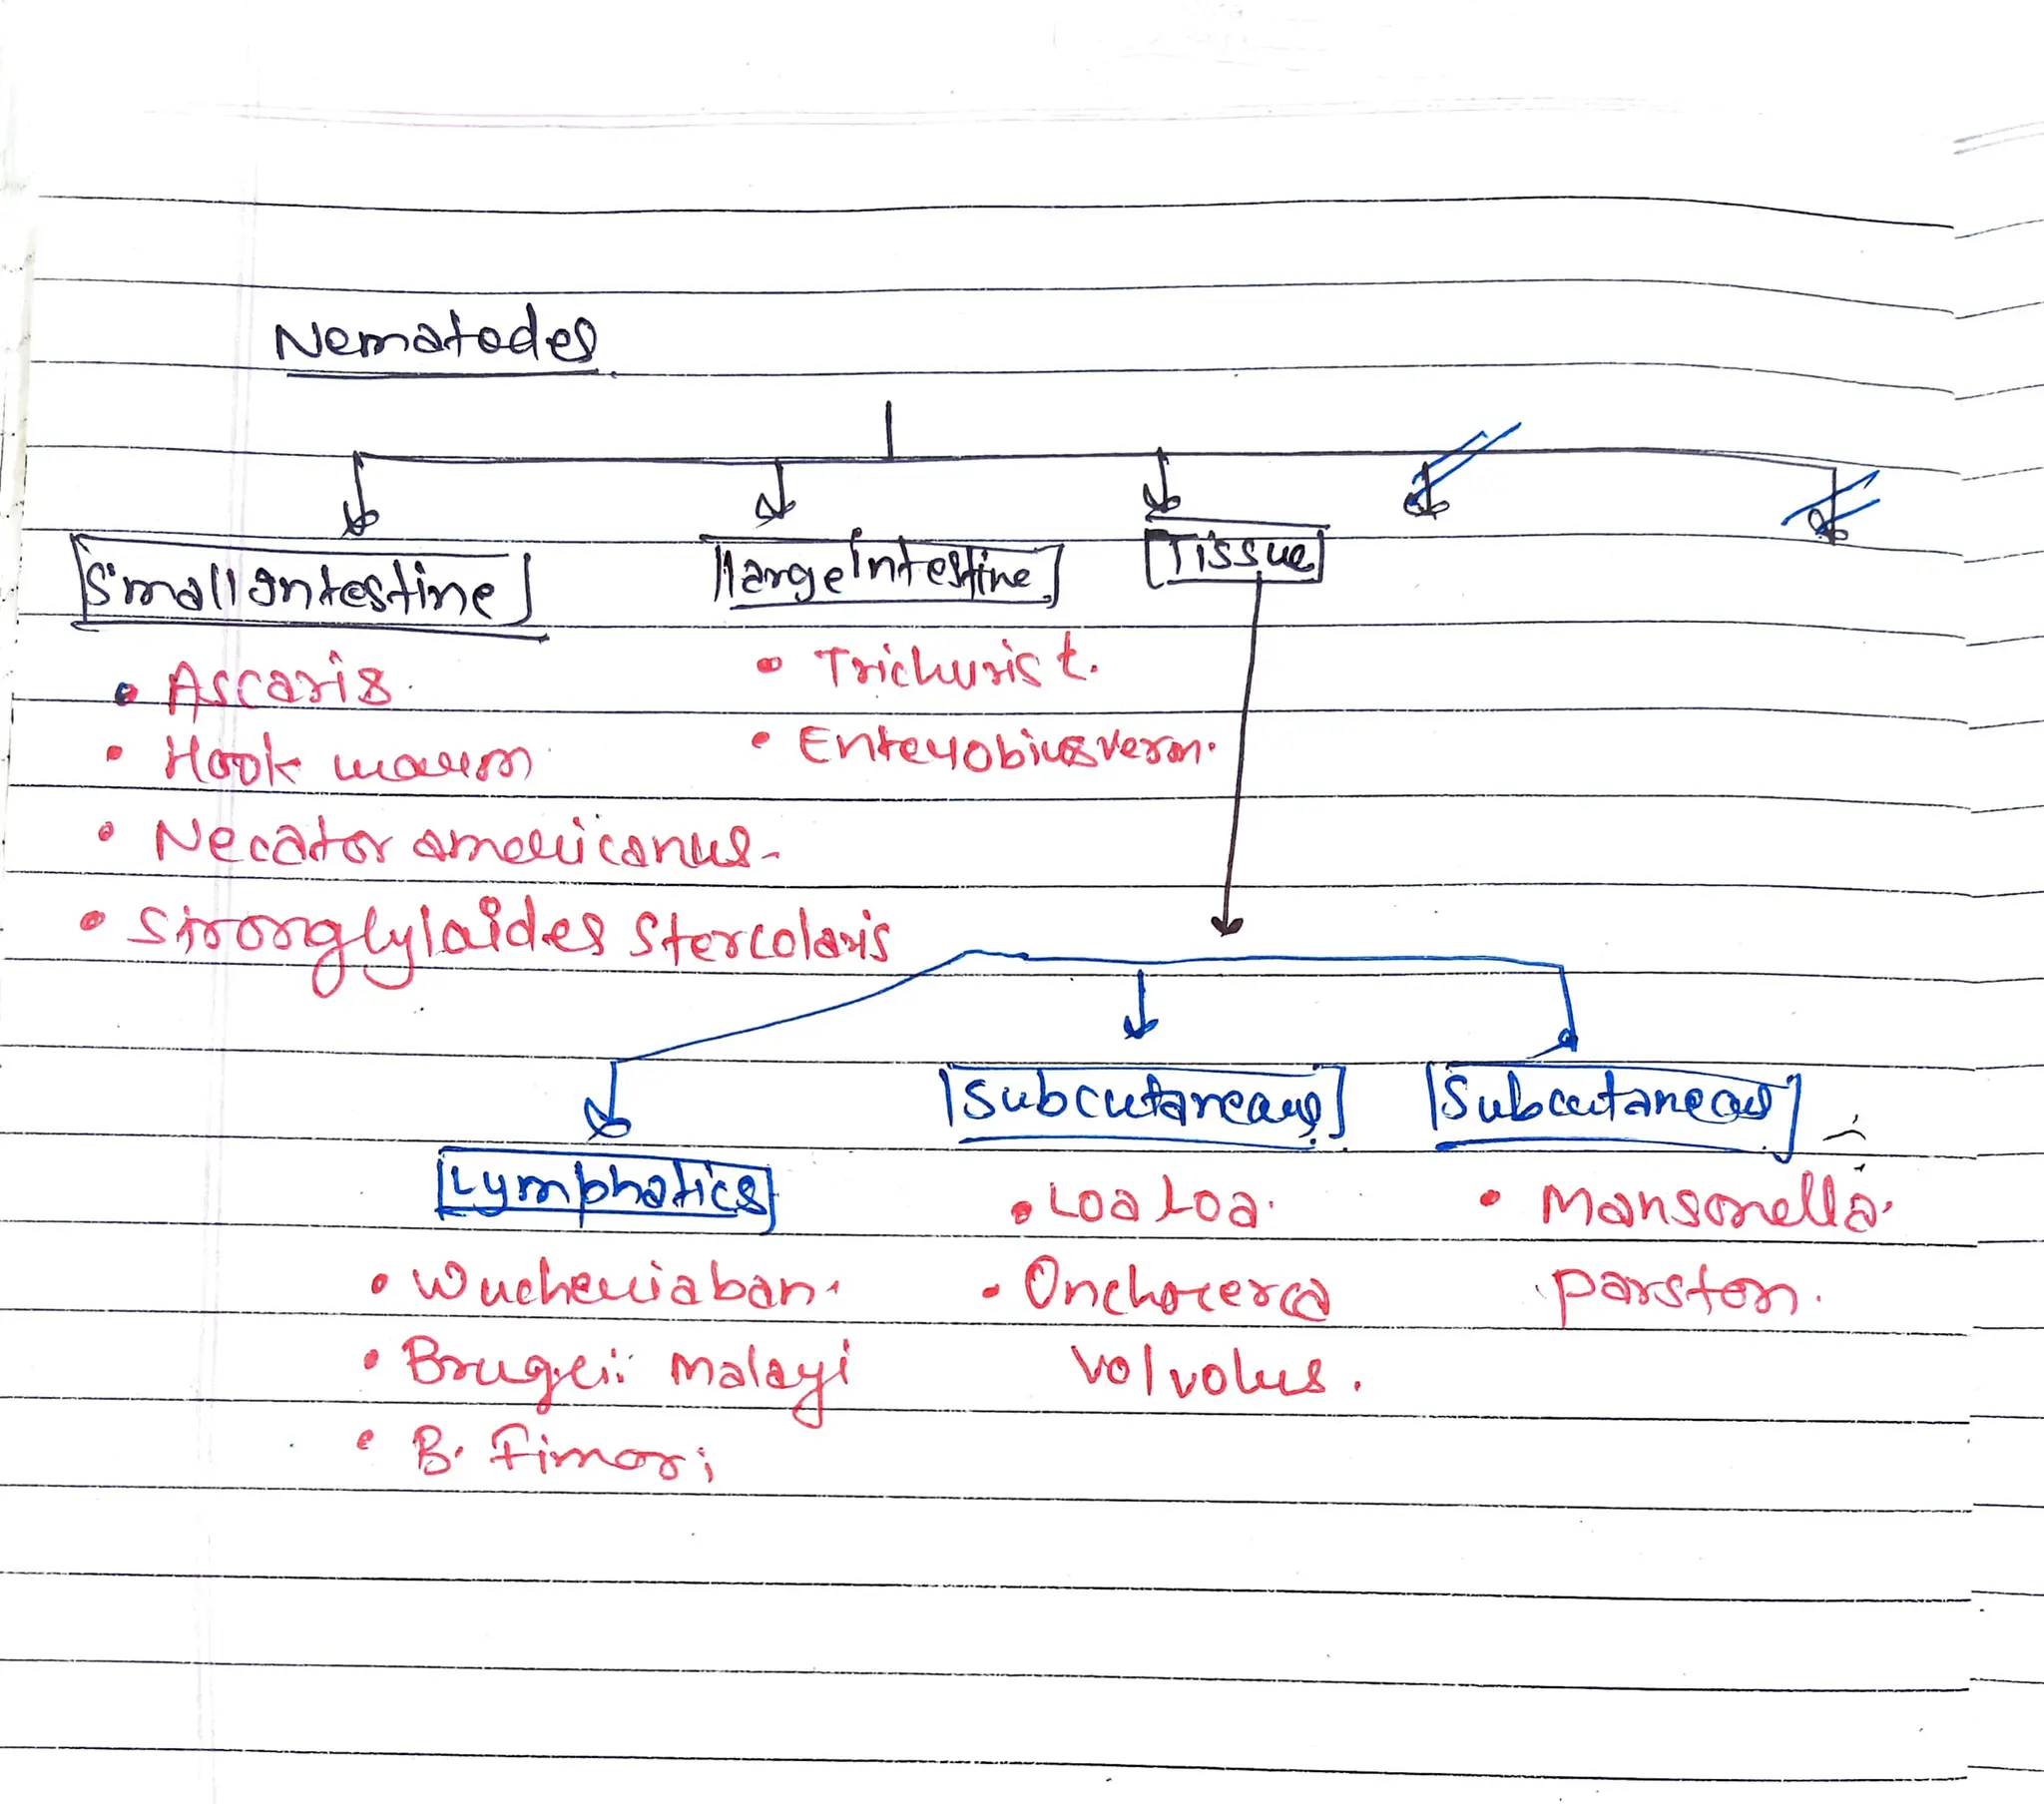 Nematodes
Small Intestine
large Intestine
Tissue
• Ascaris.
• Hook waurm
• Necator americanus.
• Strongyloides Stercolaris
• Trichuris t.
• Enterobius verm.
Lymphatics
• Wuchereria ban.
• Brugeii malayi
• B. Timori
Subcutaneous
• Loa Loa.
• Onchocerca
volvolus.
Subcutaneous
• Mansonella
parston.